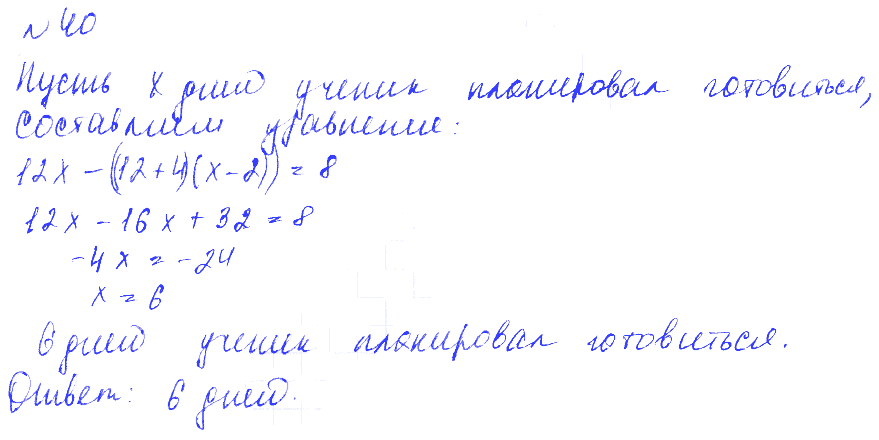 № 40
Пусть х дней ученик планировал готовиться,
составим уравнение:
12х - ((12+4)(х-2)) = 8
12х - 16х + 32 = 8
-4х = -24
х = 6
6 дней ученик планировал готовиться.
Ответ: 6 дней.